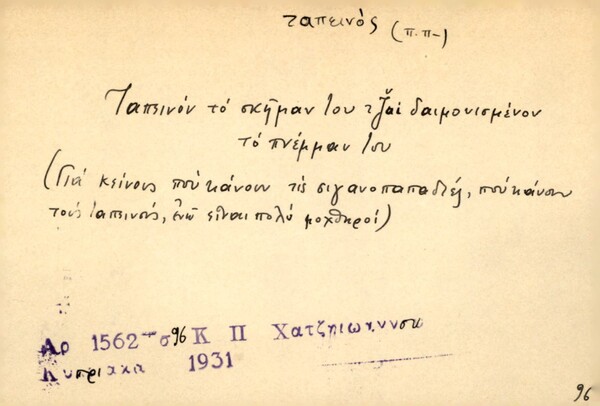 ταπεινὸς (π.π-)
Ταπεινὸν τὸ σκῆμαν του τζ̌αὶ δαιμονισμένον
τὸ πνέμμαν του
(Γιὰ κείνους ποὺ κάνουν τὶς σιγανοπαπαδιές, ποὺ κάνουν
τοὺς ταπεινούς, ἐνῶ εἶναι πολὺ μοχθηροί)
Αρ 1562 σ 96 Κ Π Χατζηιωαννου
Κυπριακα 1931
96